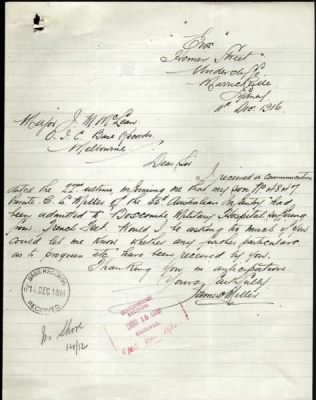 "Eros"
Homer Street
Undercliffe
Marrickville
Sydney
11th Dec. 1916
Major J. M. McLean
O. I. C. Base Records
Melbourne.
Dear Sir
I received a communication
dated the 22nd ultimo informing me that my son No 4847
Private C. L. Miller of the 55th Australian Infantry had
been admitted to Boscombe Military Hospital suffering
from Trench feet. Would I be asking too much of you
could let me know whether any further particulars
as to progress etc. have been received by you.
Thanking you in anticipation.
Yours faithfully
James Miller
BASE RECORDS
14 DEC 1916
RECEIVED
DEC 15 1916
Mr Shore
14/12